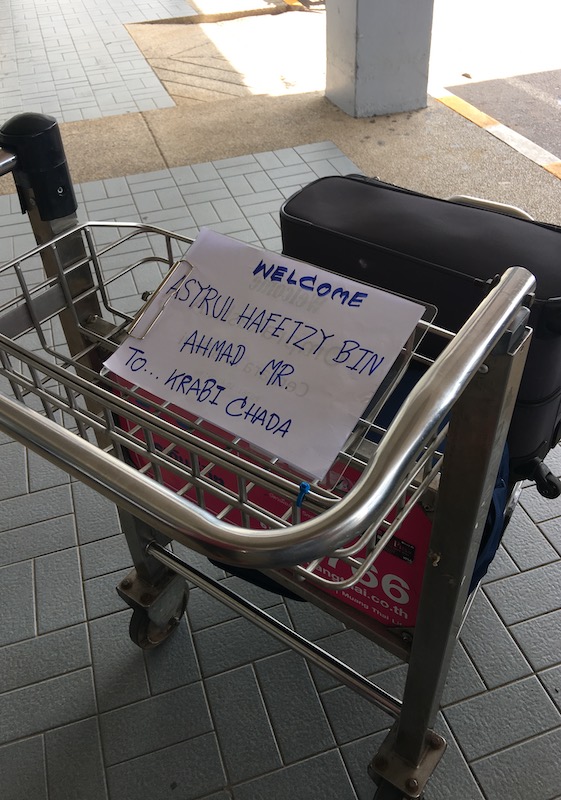 WELCOME
ASYRUL HAFETZY BIN
AHMAD MR.
TO... KRABI CHADA
766
angthai.co.th
Muang Thai Li